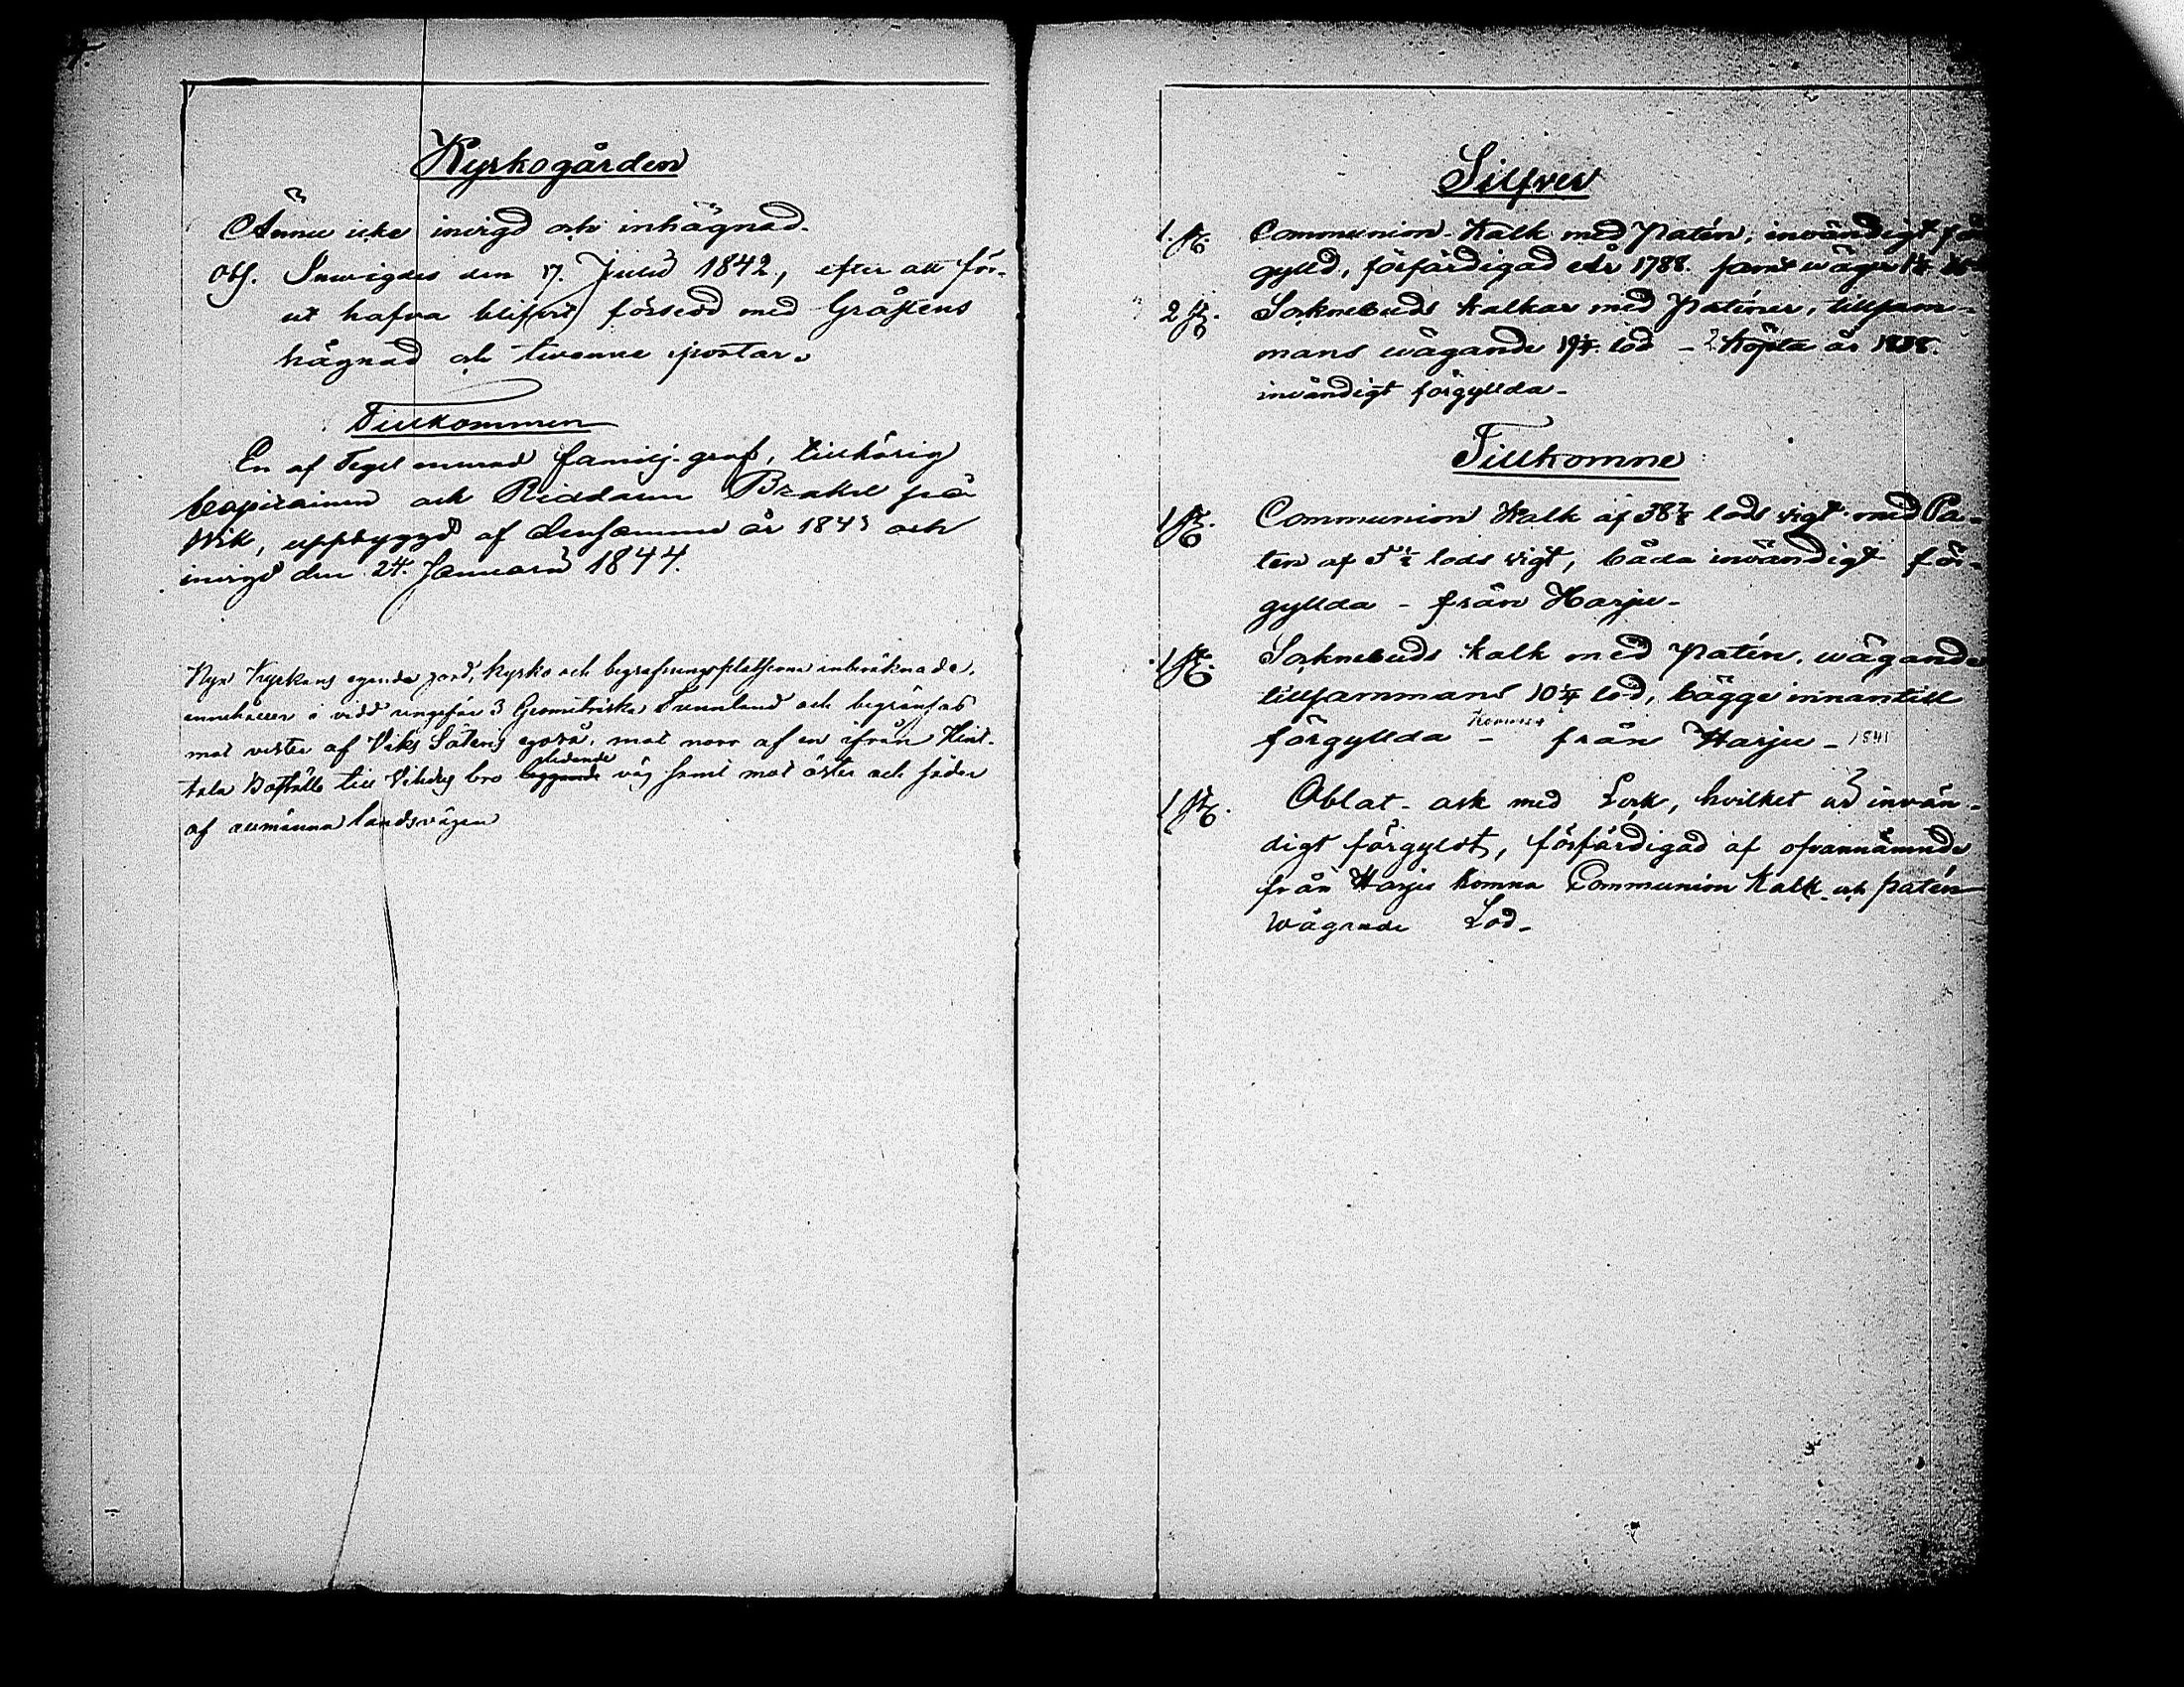 Kyrkogården
Ännu icke invigd och inhägnad.
Obs. Invigdes den 17. Julii 1842, efter att för-
ut hafva blifvit försedd med Gråstens
hägnad och tvenne portar.
Tillkommen
En af Tegel murad familj-graf, tillhörig
Capitainen och Riddaren Brakel på
Wik, uppbyggd af densamme år 1843 och
invigd den 24. Januarii 1844.
Nya Kyrkans egande jord, kyrko och begrafningsplatserne inberäknade,
innehåller i vidd ungefär 3 Geometriska Tunnland och begränsas
mot vester af Viks Säteris egora, mot norr af en ifrån
tala Boställe till bro leggande ledande väg samt mot öster och söder
af allmänna landsvägen
Silfver
1. st. Communion-Kalk med Patén, invändigt för
gylld, förfärdigad år 1788. samt väger
2 st. Soknebuds kalkar med Paténer, tillsam-
mans wägande 19 1/4 lod - 2 köpta år 1838.
invändigt förgyllda-
Tillkomne
1 st. Communion Kalk af 38 7/8 lods vigt med Pa-
ten af 5 1/2 lods vigt, båda invändigt för-
gyllda - från Harju-
1 st. Soknebuds kalk med Patén, wägande
tillsammans 10 1/4 lod, bägge innantill
förgyllda - Komne från Harju - 1841
1 st. Oblat-ask med Lock, hvilket är invän-
digt förgyldt, förfärdigad af ofvannämnde
från Harju komna Communion Kalk och patén
wägande Lod-